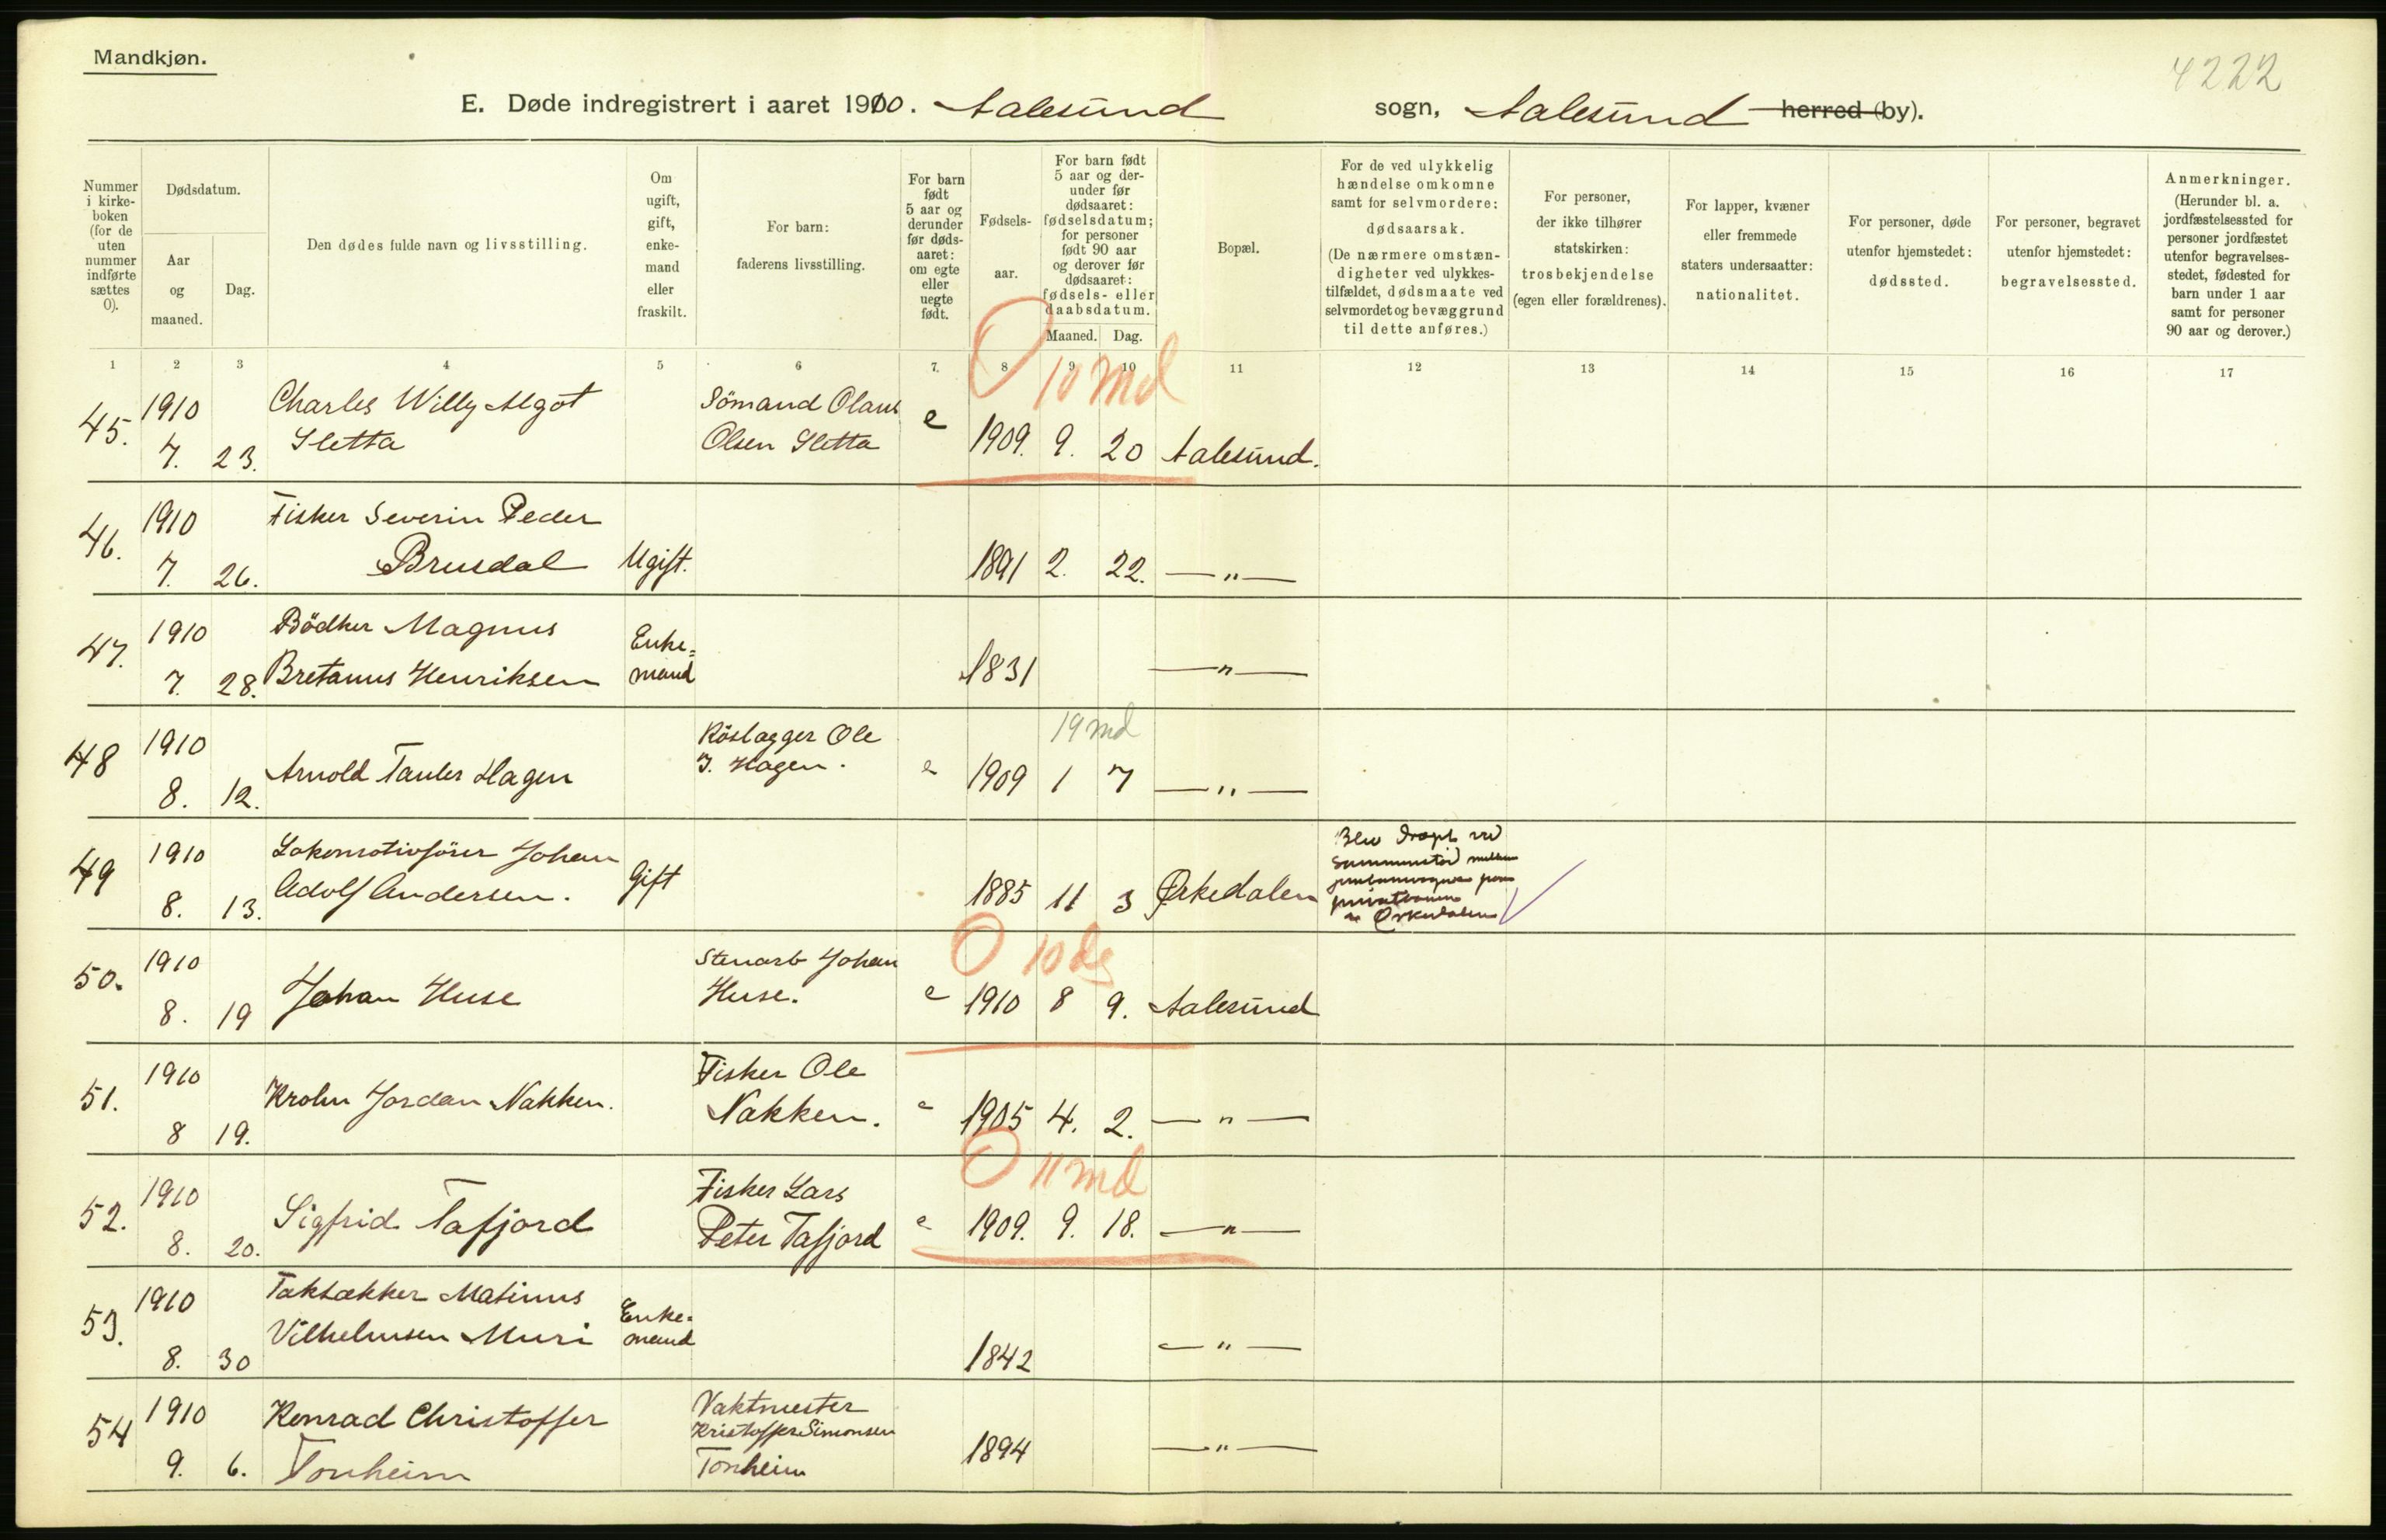 Mandkjøn.
4222
E. Døde indregistrert i aaret 1910. Aalesund sogn, Aalesund herred (by).
Nummer i kirkeboken (for de uten nummer indførte sættes 0).
Dødsdatum.
Aar og maaned.
Dag.
Den dødes fulde navn og livsstilling.
Om ugift, gift, enkemand eller fraskilt.
For barn: faderens livsstilling.
For barn født 5 aar og derunder før dødsaaret: om egte eller uegte født.
Fødselsaar.
For barn født 5 aar og derunder før dødsaaret: fødselsdatum; for personer født 90 aar og derover før dødsaaret: fødsels- eller daabsdatum.
Maaned. Dag.
Bopæl.
For de ved ulykkelig hændelse omkomne samt for selvmordere: dødsaarsak. (De nærmere omstændigheter ved ulykkestilfældet, dødsmaate ved selvmordet og bevæggrund til dette anføres.)
For personer, der ikke tilhører statskirken: trosbekjendelse (egen eller forældrenes).
For lapper, kvæner eller fremmede staters undersaatter: nationalitet.
For personer, døde utenfor hjemstedet: dødssted.
For personer, begravet utenfor hjemstedet: begravelsessted.
Anmerkninger. (Herunder bl. a. jordfæstelsessted for personer jordfæstet utenfor begravelsesstedet, fødested for barn under 1 aar samt for personer 90 aar og derover.)
1 2 3 4 5 6 7. 8 9 10 11 12 13 14 15 16 17
0 10 md
45. 1910 7. 23. Charles Willy Algot Sletta Sömand Olaus Olsen Sletta e 1909. 9. 20 Aalesund.
46. 1910 7. 26. Fisker Severin Peder Brusdal Ugift. 1891 2. 22. — " —
47. 1910 7. 28. Bödker Magnus Bretanus Henriksen Enke= mand 1831 — " —
19 md
48 1910 8. 12. Arnold Tauler Hagen Köslagger Ole J. Hagen. e 1909 1 7 — " —
49 1910 8. 13. Lokomotivförer Johan Adolf Andersen. Gift 1885 11 3 Ørkedalen Blev dræpt ved sammenstöd mellem Ørkedalen
0 10 dg
50. 1910 8. 19 Johan Huse Stenarb Johan Huse. e 1910 8 9. Aalesund
51. 1910 8 19. Krohn Jordan Nakken. Fisker Ole Nakken. e 1905 4. 2. — " —
0 11 md
52. 1910 8. 20. Sigfrid Tafjord Fisker Lars Peter Tafjord e 1909. 9. 18. — " —
53. 1910 8. 30 Taktækker Matinus Vilhelmsen Muri Enke= mand 1842 — " —
54 1910 9. 6. Konrad Christoffer Tonheim Vaktmester Kristoffer Simonsen Tonheim 1894 — " —